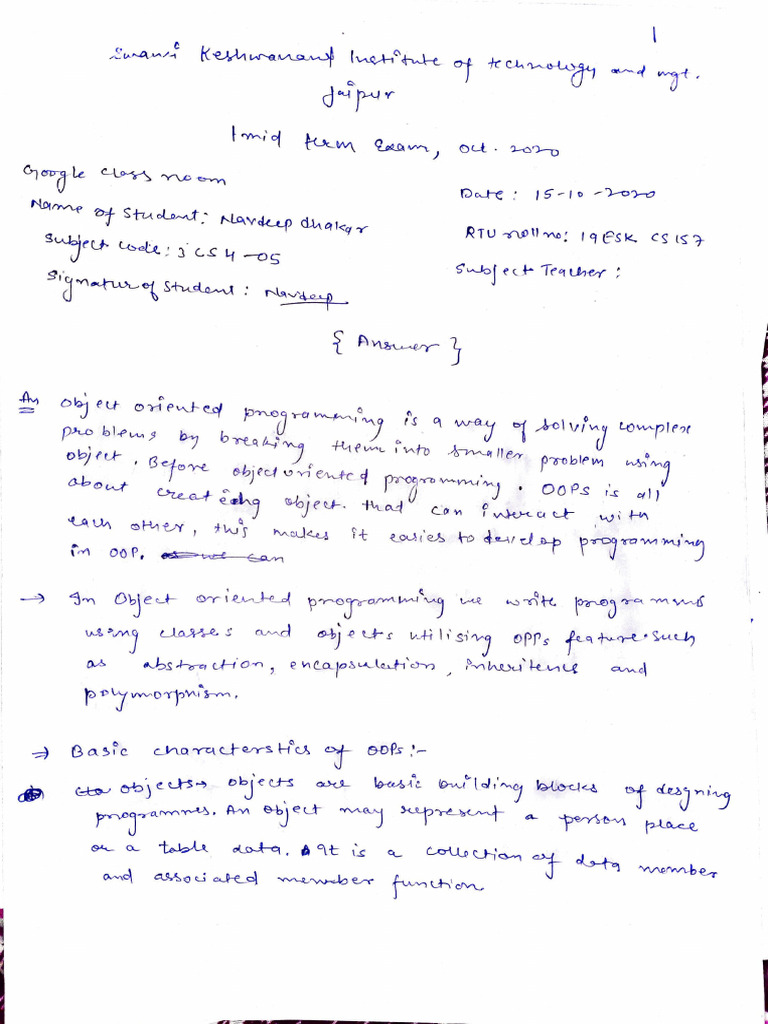 1
Swami Keshwanand Institute of technology and mgt.
Jaipur
I mid term Exam, oct. 2020
Google class room
Date : 15-10-2020
Name of Student: Navdeep dhakar
RTU roll no: 19ESK CS157
Subject code: 3CS4-05
Subject Teacher :
Signatur of Student : Navdeep
{ Answer }
Ans object oriented programming is a way of solving complex
problems by breaking them into smaller problem using
object. Before object oriented programming. OOPs is all
about creating object. that can interact with
each other, this makes it easies to develop programming
in OOP.
→ In Object oriented programming we write programms
using classes and objects utilising OPPs feature such
as abstraction, encapsulation, inheritence and
polymorphism.
⇒ Basic characterstics of OOPs:-
objects→ objects are basic building blocks of desgning
programmes. An object may represent a person place
or a table data. It is a collection of data member
and associated member function.